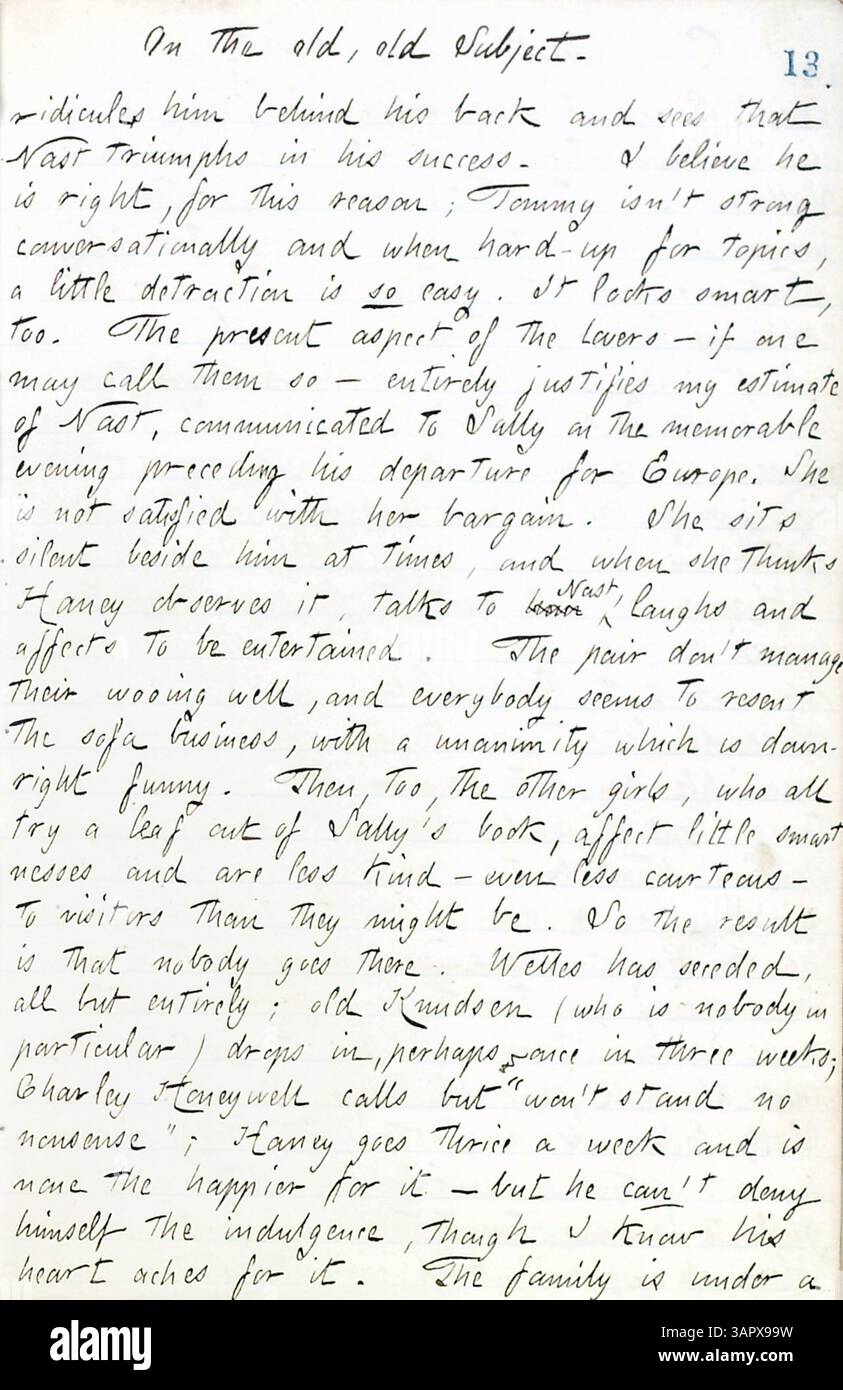 On the old, old Subject.
13
ridicules him behind his back and sees that
Nast triumphs in his success. I believe he
is right, for this reason; Tommy isn't strong
conversationally and when hard-up for topics,
a little detraction is so easy. It looks smart,
too. The present aspect of the lovers — if one
may call them so — entirely justifies my estimate
of Nast, communicated to Sally on the memorable
evening preceding his departure for Europe. She
is not satisfied with her bargain. She sits
silent beside him at times, and when she thinks
Haney observes it, talks to him Nast, laughs and
affects to be entertained. The pair don't manage
their wooing well, and everybody seems to resent
the sofa business, with a unanimity which is down-
right funny. Then, too, the other girls, who all
try a leaf out of Sally's book, affect little smart
nesses and are less kind — even less courteous —
to visitors than they might be. So the result
is that nobody goes there. Welles has seceded,
all but entirely; old Knudsen (who is nobody in
particular) drops in, perhaps, once in three weeks;
Charley Honeywell calls but "won't stand no
nonsense"; Haney goes thrice a week and is
none the happier for it — but he can't deny
himself the indulgence, though I know his
heart aches for it. The family is under a
alamy
Image ID: 3APX99W
www.alamy.com